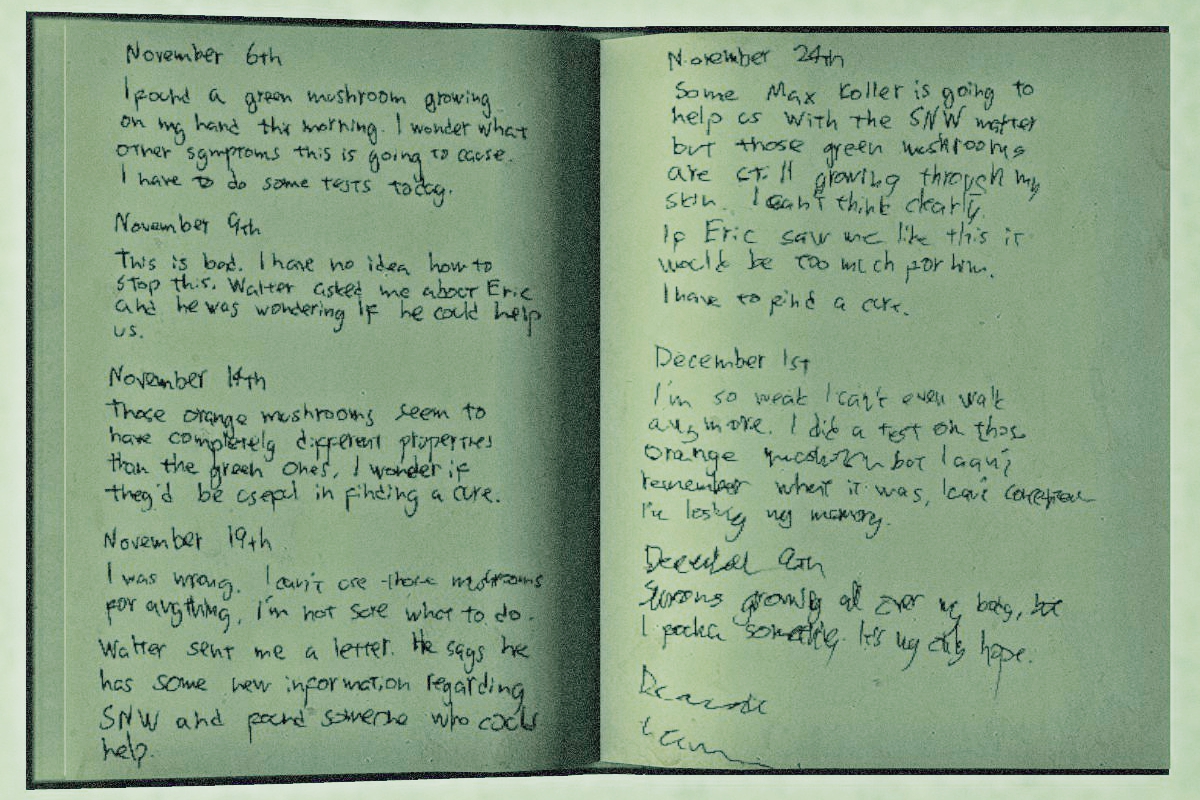 November 6th
I found a green mushroom growing
on my hand this morning. I wonder what
other symptoms this is going to cause.
I have to do some tests today.
November 9th
This is bad. I have no idea how to
stop this. Walter asked me about Eric
and he was wondering if he could help
us.
November 14th
Those orange mushrooms seem to
have completely different properties
than the green ones. I wonder if
they'd be useful in finding a cure.
November 19th
I was wrong. I can't use those mushrooms
for anything, I'm not sure what to do.
Walter sent me a letter. He says he
has some new information regarding
SNW and found someone who could
help.
November 24th
Some Max Koller is going to
help us with the SNW matter
but those green mushrooms
are still growing through my
skin. I can't think clearly.
If Eric saw me like this it
would be too much for him.
I have to find a cure.
December 1st
I'm so weak I can't even walk
anymore. I did a test on those
orange but I can't
remember what it was, I can't
I'm losing my memory.
9th
growing all over my body, but
I found something. It's my only hope.